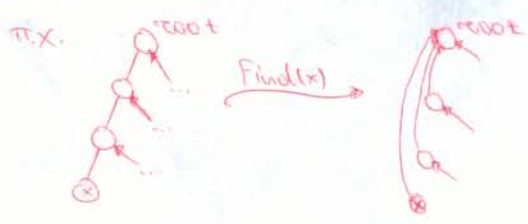 π.χ.
root
...
...
...
x
Find(x)
root
x